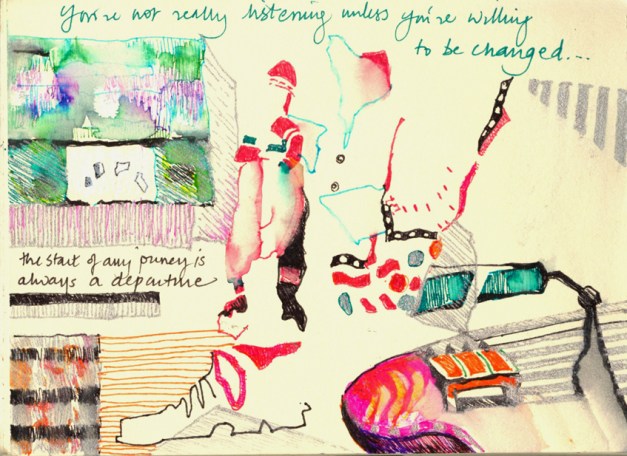 You're not really listening unless you're willing
to be changed...
the start of any jouney is
always a departure